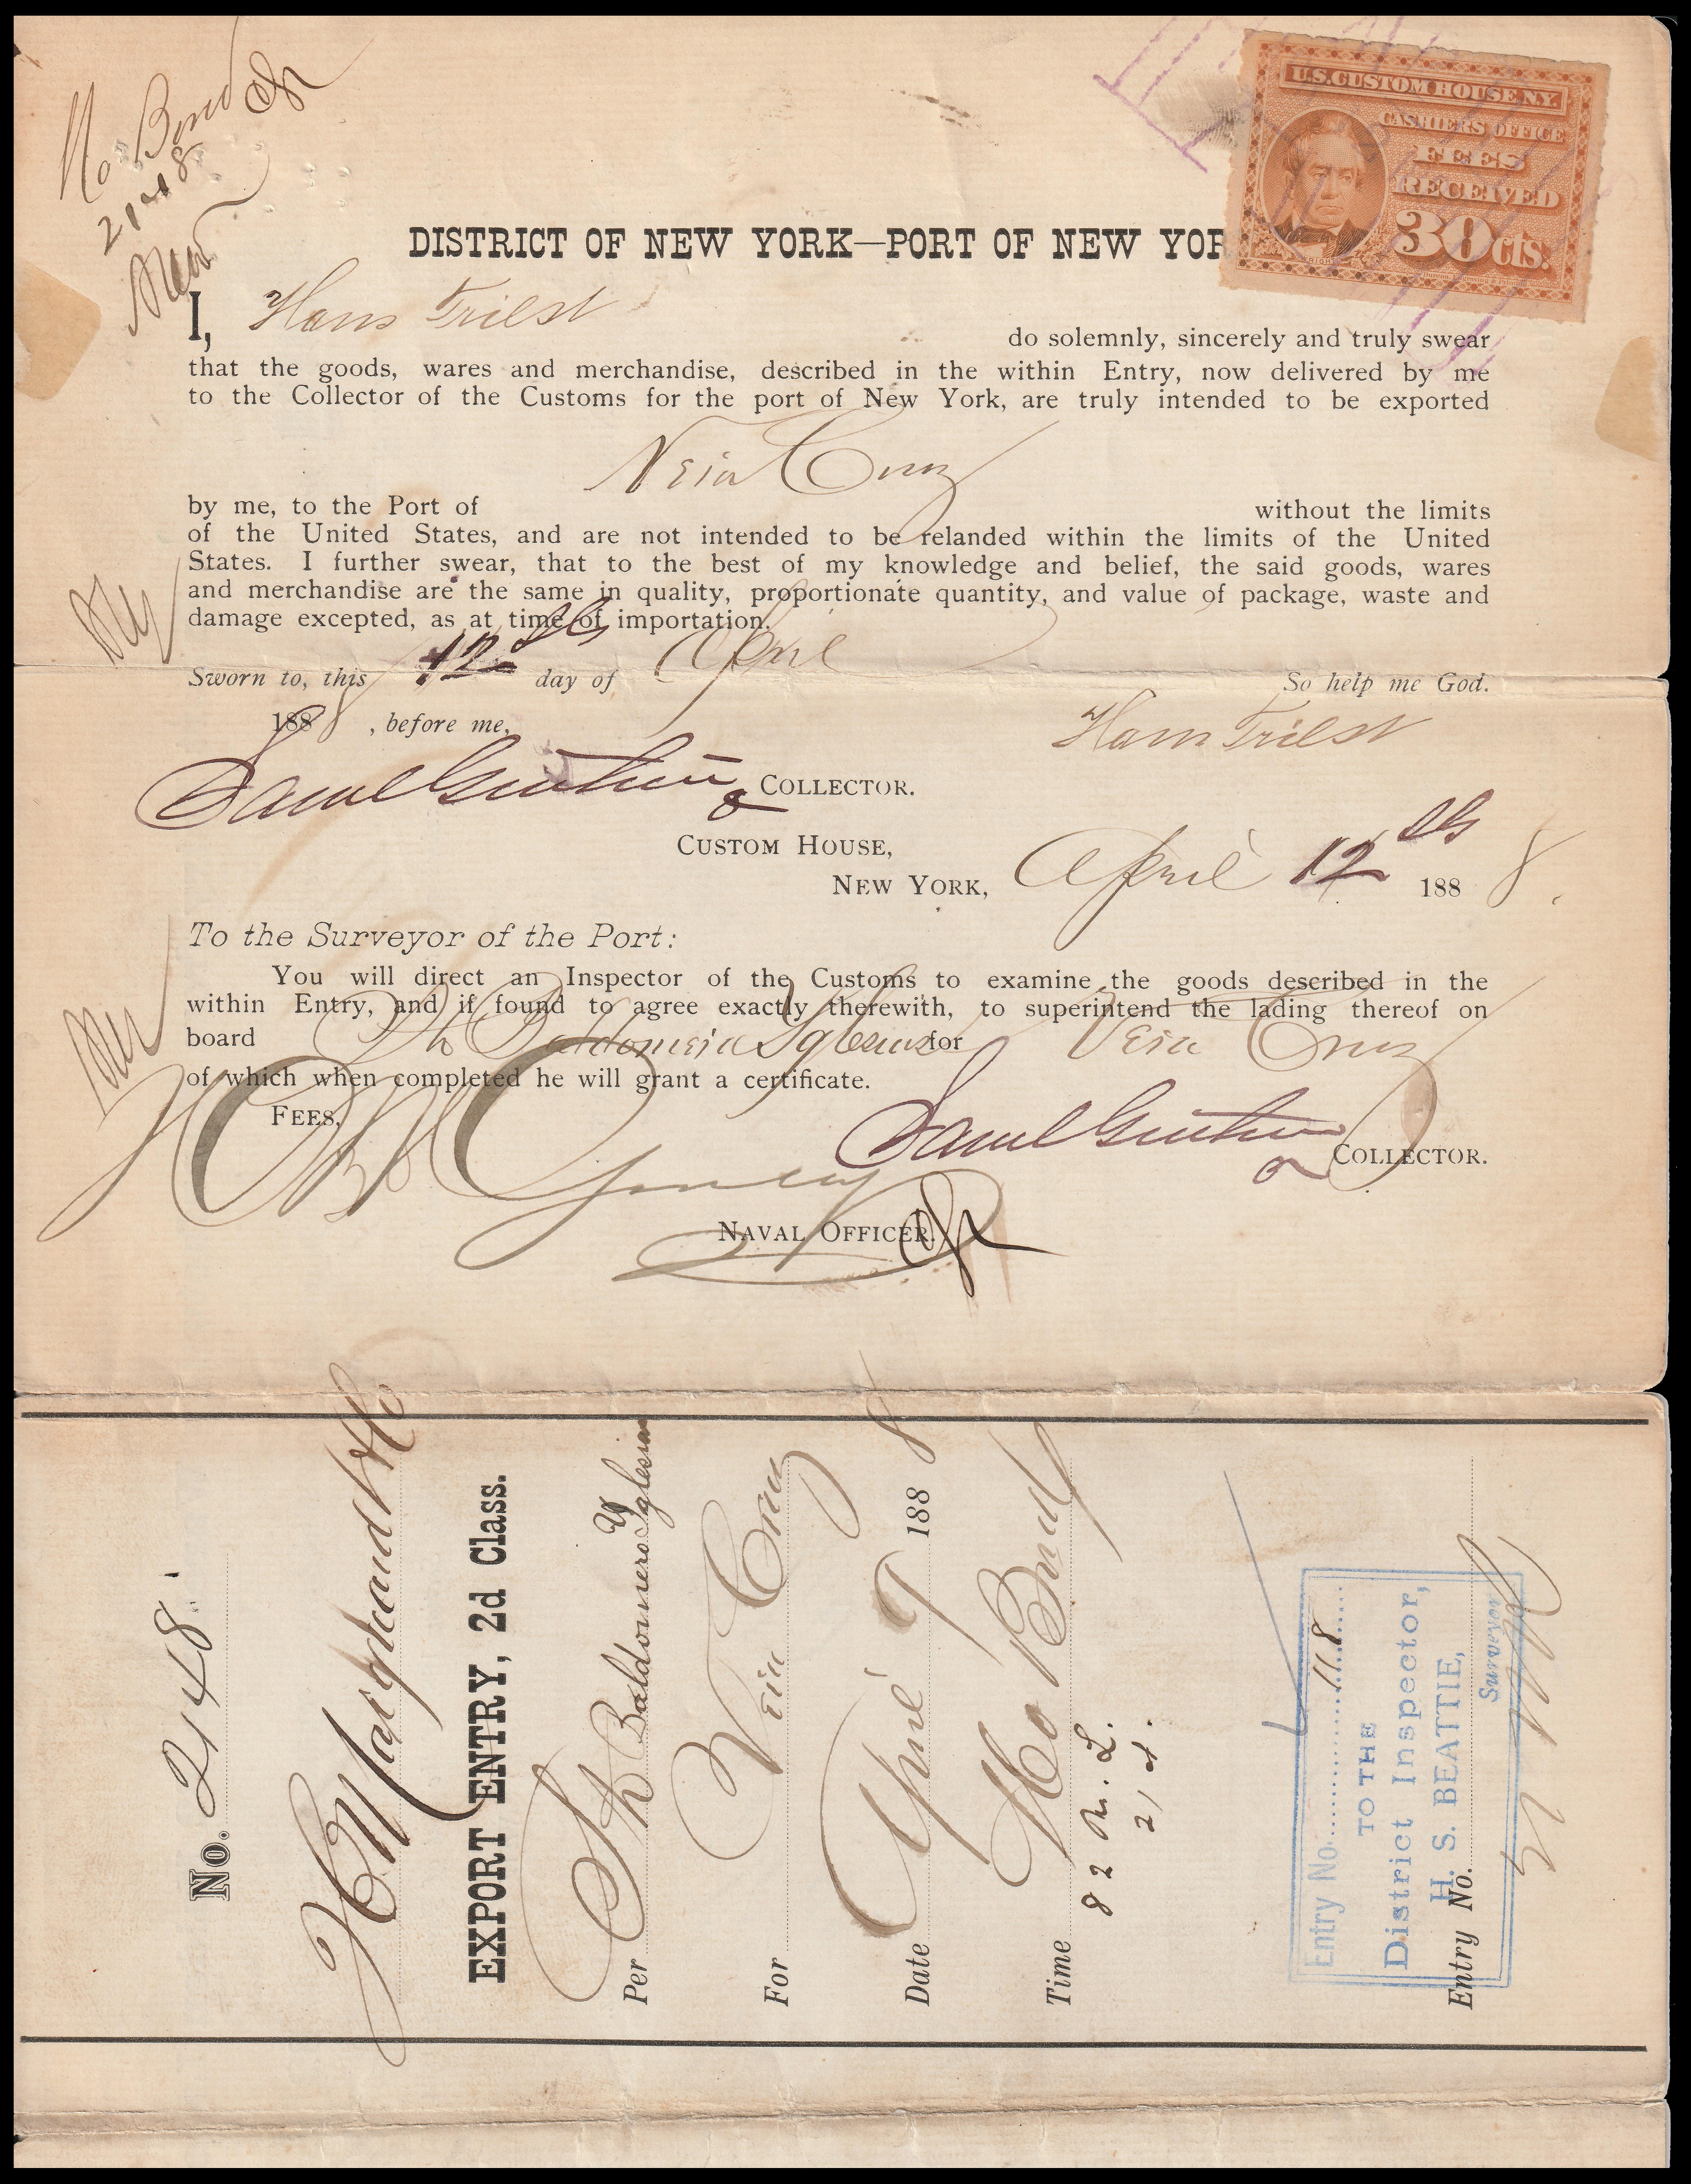 No Bond
2148
U.S. CUSTOM HOUSE N.Y.
CASHIERS OFFICE
FEES
RECEIVED
30 cts.
DISTRICT OF NEW YORK—PORT OF NEW YOR
I, Hans Triest do solemnly, sincerely and truly swear
that the goods, wares and merchandise, described in the within Entry, now delivered by me
to the Collector of the Customs for the port of New York, are truly intended to be exported
Vera Cruz
by me, to the Port of without the limits
of the United States, and are not intended to be relanded within the limits of the United
States. I further swear, that to the best of my knowledge and belief, the said goods, wares
and merchandise are the same in quality, proportionate quantity, and value of package, waste and
damage excepted, as at time of importation.
Sworn to, this 12 day of April So help me God.
1888, before me, Hans Triest
COLLECTOR.
CUSTOM HOUSE,
NEW YORK, April 12 1888.
To the Surveyor of the Port:
You will direct an Inspector of the Customs to examine the goods described in the
within Entry, and if found to agree exactly therewith, to superintend the lading thereof on
board Baldomero Iglesias for Vera Cruz
of which when completed he will grant a certificate.
FEES,
COLLECTOR.
NAVAL OFFICER.
No. 2148
H Marquand & Co
EXPORT ENTRY, 2d Class.
Per Baldomero Yglesias
For Vera Cruz
Date April 9 1888
Time No Bond
82
21
Entry No. 118
TO THE
District Inspector,
H. S. BEATTIE,
Surveyor
Entry No.